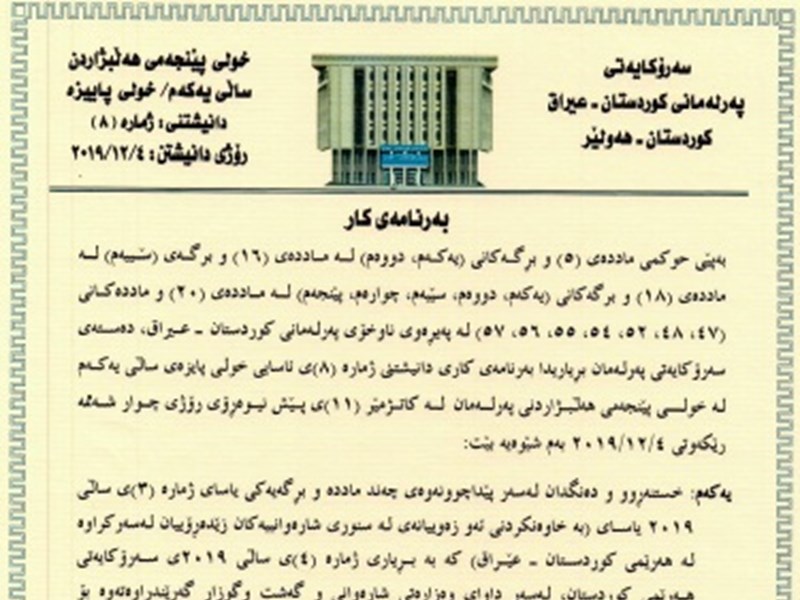 سەرۆکایەتی
پەرلەمانی کوردستان ـ عیراق
کوردستان ـ هەولێر
خولی پێنجەمی هەڵبژاردن
ساڵی یەکەم/ خولی پاییزە
دانیشتنی: ژمارە (٨)
رۆژی دانیشتن: ٢٠١٩/١٢/٤
بەرنامەی کار
بەپێی حوکمی ماددەی (٥) و برگەکانی (یەکەم، دووەم) لە ماددەی (١٦) و برگەی (سێیەم) لە
ماددەی (١٨) و برگەکانی (یەکەم، دووەم، سێیەم، چوارەم، پێنجەم) لە ماددەی (٢٠) و ماددەکانی
(٤٧، ٤٨، ٥٢، ٥٤، ٥٥، ٥٦، ٥٧) لە پەیرەوی ناوخۆی پەرلەمانی کوردستان ـ عیراق، دەستەی
سەرۆکایەتی پەرلەمان بریاریدا بەرنامەی کاری دانیشتنی ژمارە (٨)ی ئاسایی خولی پایزەی ساڵی یەکەم
لە خولی پێنجەمی هەڵبژاردنی پەرلەمان لە کاتژمێر (١١)ی پێش نیوەڕۆی رۆژی چوار شەممە
رێکەوتی ٢٠١٩/١٢/٤ بەم شێوەیە بێت:
یەکەم: خستنەروو و دەنگدان لەسەر پێداچوونەوەی چەند ماددە و برگەیەکی یاسای ژمارە (٣)ی ساڵی
٢٠١٩ یاسای (بە خاوەنکردنی ئەو زەوییانەی لە سنوری شارەوانییەکان زێدەرۆییان لەسەرکراوە
لە هەرێمی کوردستان ـ عێراق) کە بە بریاری ژمارە (٤)ی ساڵی ٢٠١٩ی سەرۆکایەتی
هەرێمی کوردستان، لەسەر داوای وەزارەتی شارەوانی و گەشت وگوزار گەرێندراوەتەوە بۆ